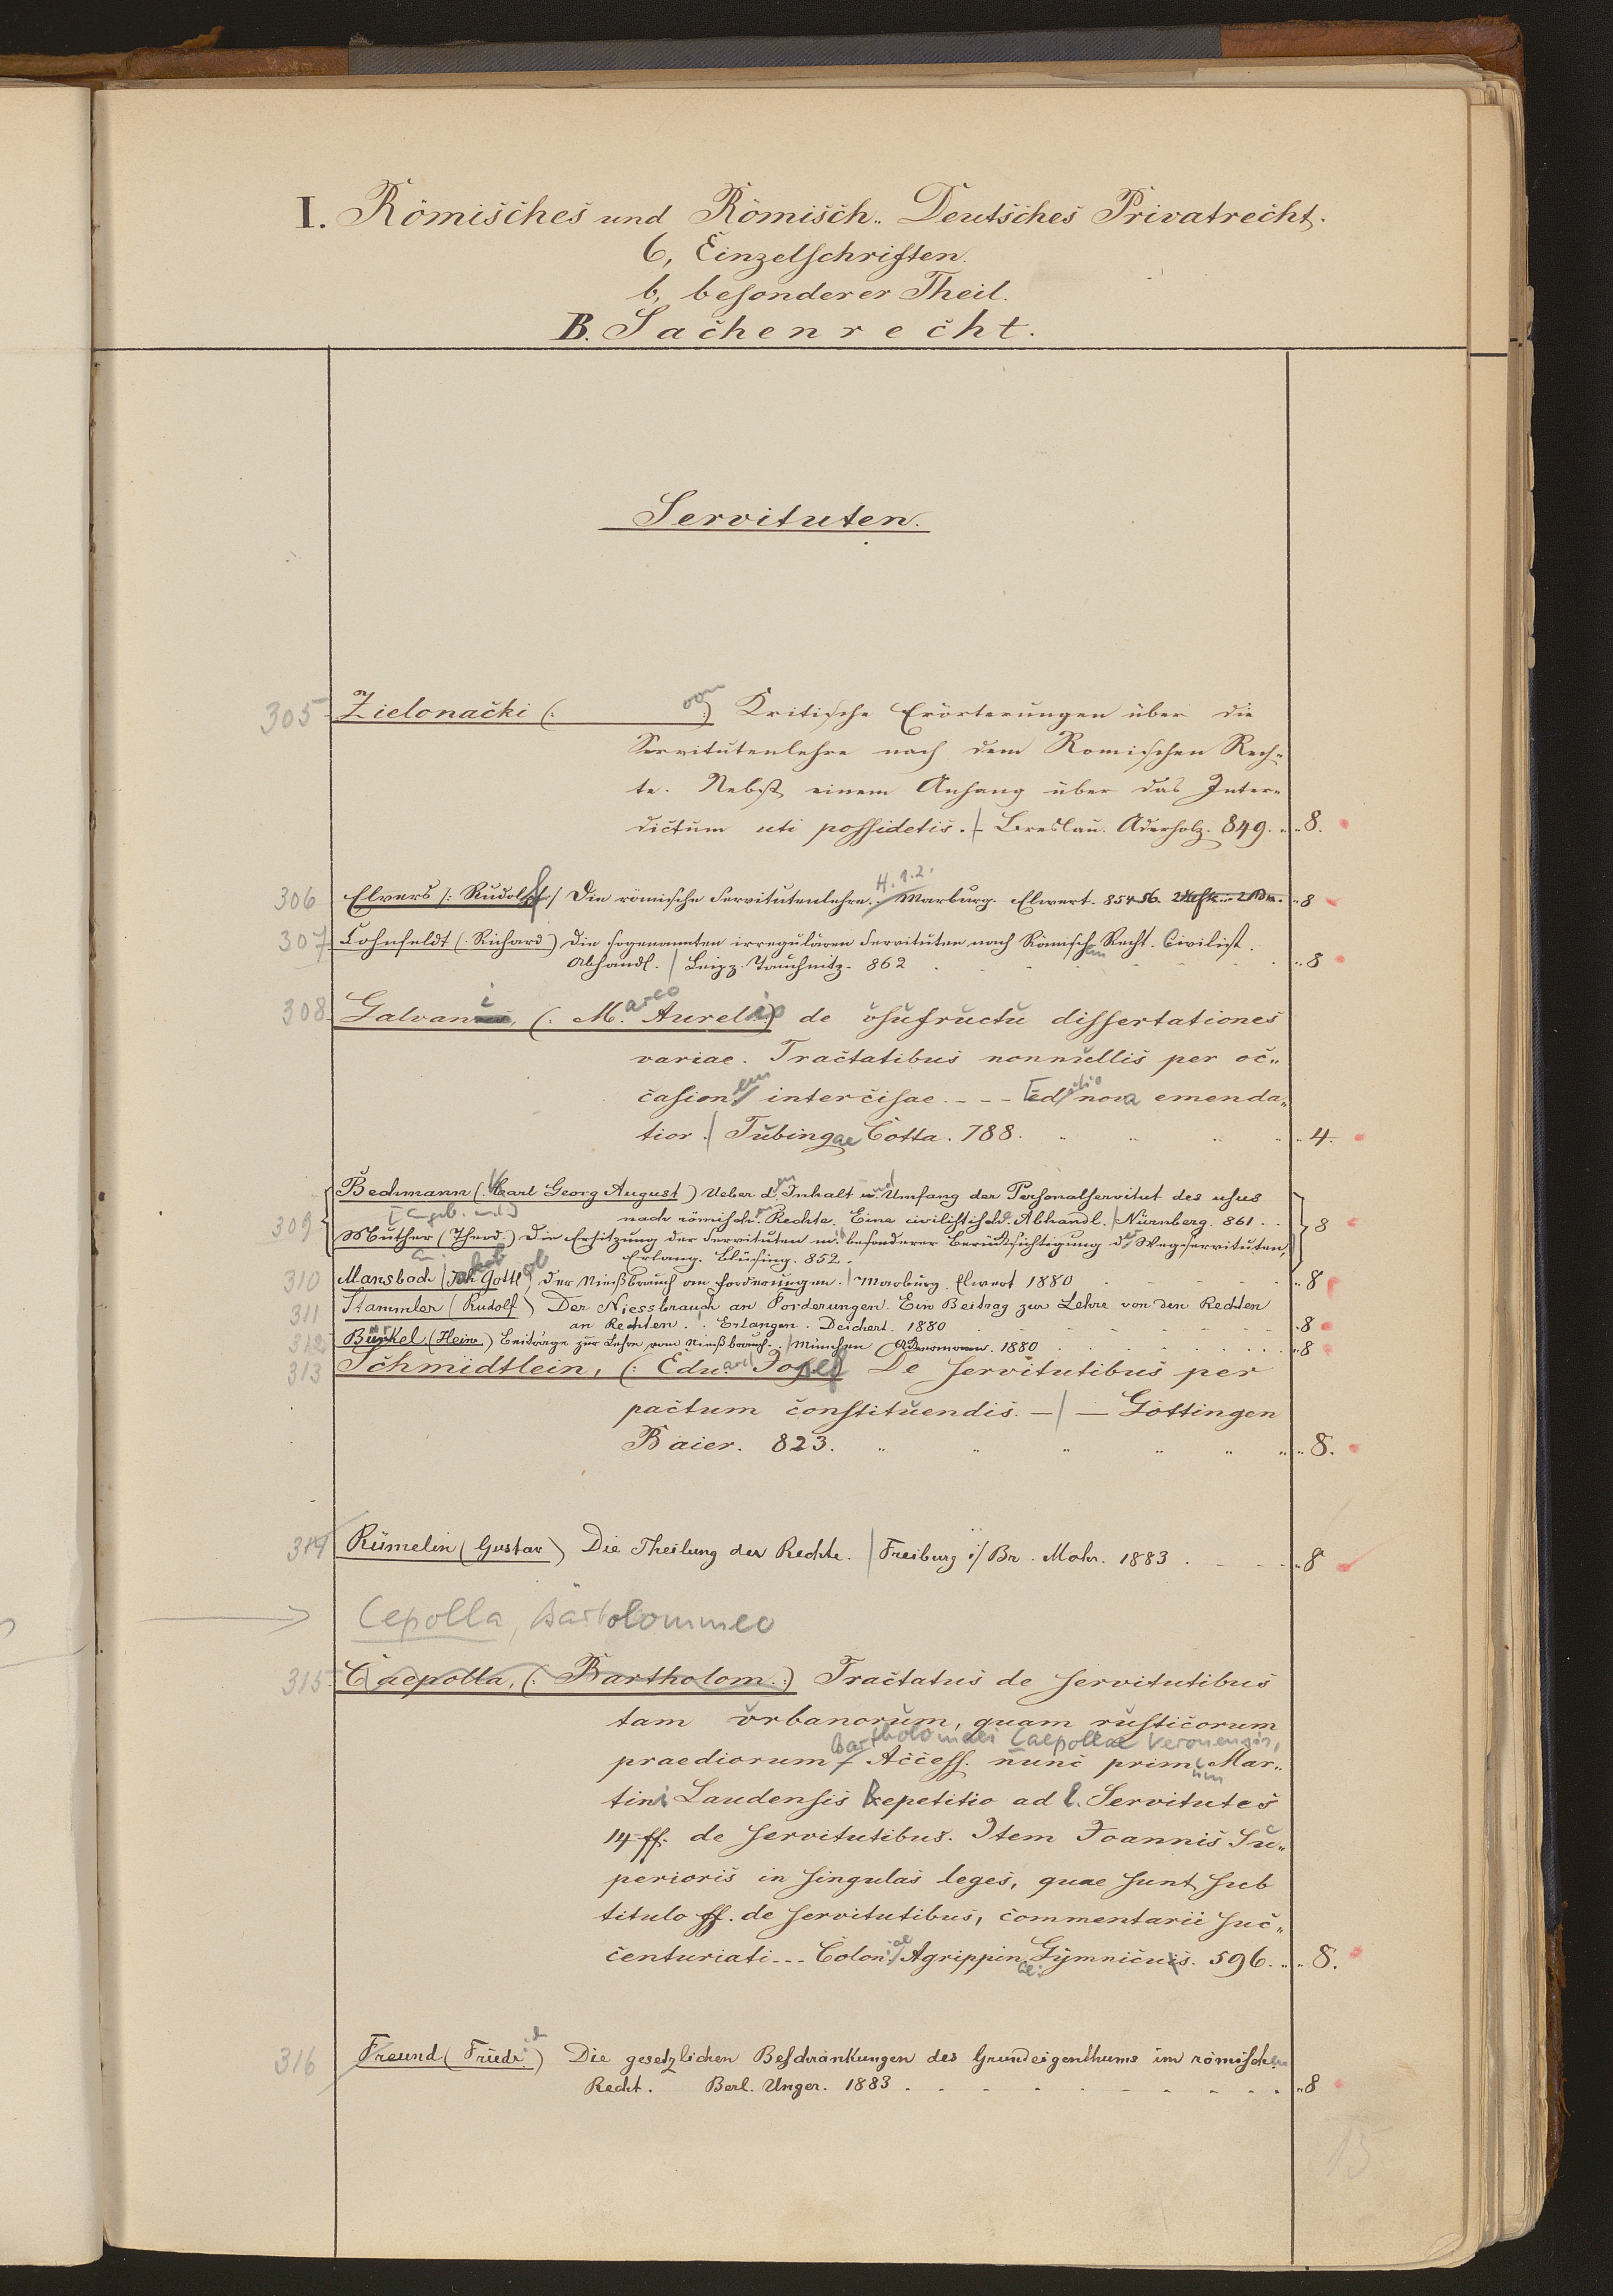 I. Römisches und Römisch-Deutsches Privatrecht.
6, Einzelschriften.
b, besonderer Theil.
B. Sachenrecht.
Servituten.
305 Zielonacki (: von :) Kritische Erörterungen über die
Servitutenlehre nach dem Romischen Rech-
te. Nebst einem Anhang über das Inter-
dictum uti possidetis. | Breslau. Aderholz. 849. 8.
306 Elvers (: Rudolf :) Die römische Servitutenlehre. H. 1.2. Marburg. Elwert. 854-56. 8
307 Cohnfeldt (: Richard) Die sogenannten irregulären Servituten nach Römischem Recht. Civilist.
Abhandl. | Leipz. Tauchnitz. 862 8
308 Galvani, (: Marco Aurelio) de usufructu dissertationes
variae. Tractatibus nonnullis per oc-
casionem intercisae. - - - Editio nova emenda-
tior. | Tubingae Cotta. 788. 4.
309 Bechmann (: Karl Georg August) Ueber den Inhalt und Umfang der Personalservitut des usus
[angeb. und]
nach römischen Rechte. Eine civilistische Abhandl. | Nürnberg. 861. 8
Muther (Theod.) Die Ersitzung der Servituten m. besonderer Berücksichtigung der Wegservituten,
Erlang. Bläsing. 852.
310 Mansbach (Jakob Gottlob) Der Nießbrauch an Forderungen. | Marburg. Elwert 1880 8
311 Stammler (Rudolf) Der Niessbrauch an Forderungen. Ein Beitrag zur Lehre von den Rechten
an Rechten. Erlangen. Deichert. 1880 8
312 Bürkel (Heinr.) Beiträge zur Lehre vom Nießbrauch. | München Ackermann. 1880 8
313 Schmidtlein, (: Eduard Josef) De servitutibus per
pactum constituendis. - | - Göttingen
Baier. 823. 8.
314 Rümelin (Gustav) Die Theilung der Rechte. | Freiburg i/Br. Mohr. 1883. 8
Cepolla, Bartolommeo
315 Caepolla, (: Bartholom. :) Tractatus de servitutibus
tam urbanorum, quam rusticorum
Bartholomaei Caepollae Veronensis,
praediorum Access. nunc primum Mar-
tini Laudensis Repetitio ad l. Servitutes
14 ff. de servitutibus. Item Joannis Su-
perioris in singulas leges, quae sunt sub
titulo ff. de servitutibus, commentarii suc-
centuriati - - - Coloniae Agrippin. Gymnicus. 596. 8.
316 Freund (Friedr.) Die gesetzlichen Beschränkungen des Grundeigenthums im römischen
Recht. Berl. Unger. 1883 8
15